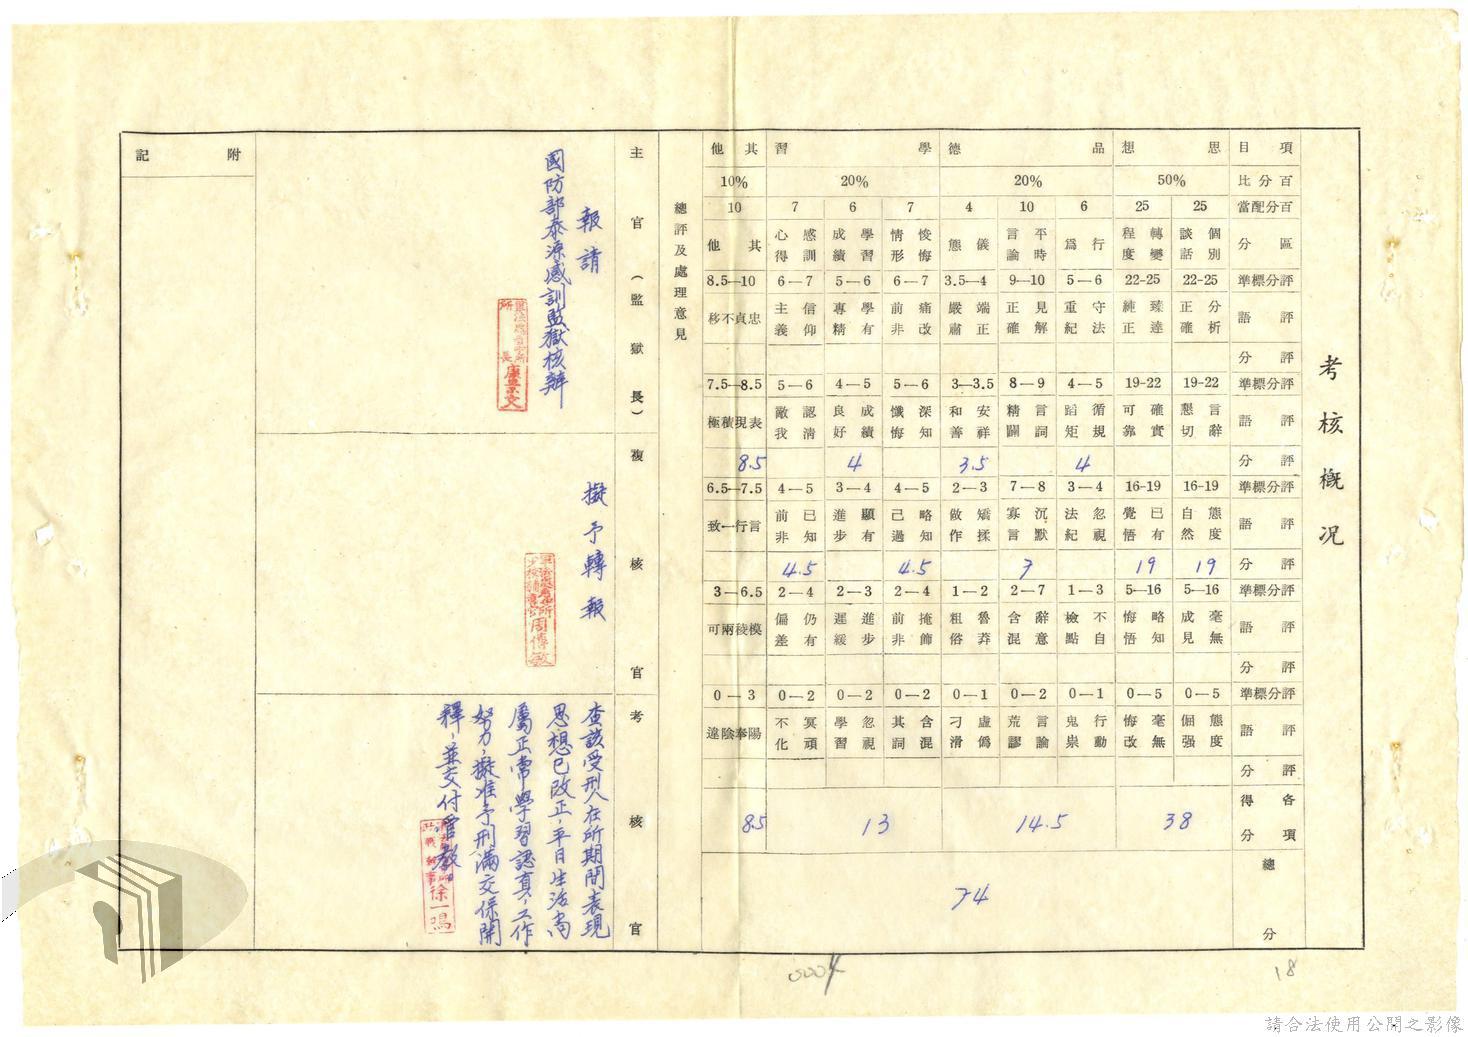 考核概況
項目 思想 品德 學習 其他
百分比 50% 20% 20% 10%
百分配當 25 25 6 10 4 7 6 7 10
區分 個別談話 轉變程度 行為 平時言論 儀態 悛悔情形 學習成績 感訓心得 其他
評分標準 22-25 22-25 5—6 9—10 3.5—4 6—7 5—6 6—7 8.5—10
評語 分析正確 臻達純正 守法重紀 見解正確 端正嚴肅 痛改前非 學有專精 信仰主義 忠貞不移
評分
評分標準 19-22 19-22 4—5 8—9 3—3.5 5—6 4—5 5—6 7.5—8.5
評語 言辭懇切 確實可靠 循規蹈矩 言詞精闢 安祥和善 深知懺悔 成績良好 認清敵我 表現積極
評分 4 3.5 4 8.5
評分標準 16-19 16-19 3—4 7—8 2—3 4—5 3—4 4—5 6.5—7.5
評語 態度自然 已有覺悟 忽視法紀 沉默寡言 矯揉做作 略知己過 顯有進步 已知前非 言行一致
評分 19 19 7 4.5 4.5
評分標準 5—16 5—16 1—3 2—7 1—2 2—4 2—3 2—4 3—6.5
評語 毫無成見 略知悔悟 不自檢點 辭意含混 魯莽粗俗 掩飾前非 進步遲緩 仍有偏差 模稜兩可
評分
評分標準 0—5 0—5 0—1 0—2 0—1 0—2 0—2 0—2 0—3
評語 態度倔强 毫無悔改 行動鬼祟 言論荒謬 虛僞刁滑 含混其詞 忽視學習 冥頑不化 陽奉陰違
評分
各項得分 38 14.5 13 8.5
總分 74
總評及處理意見
考核官
查該受刑人在所期間表現
思想已改正，平日生活尚
屬正常學習認真，工作
努力，擬准予刑滿交保開
釋，並交付管教。
徐一鳴
複核官
擬予轉報
周傳敏
主官（監獄長）
報請
國防部泰源感訓監獄核辦
附記
0004
18
請合法使用公開之影像